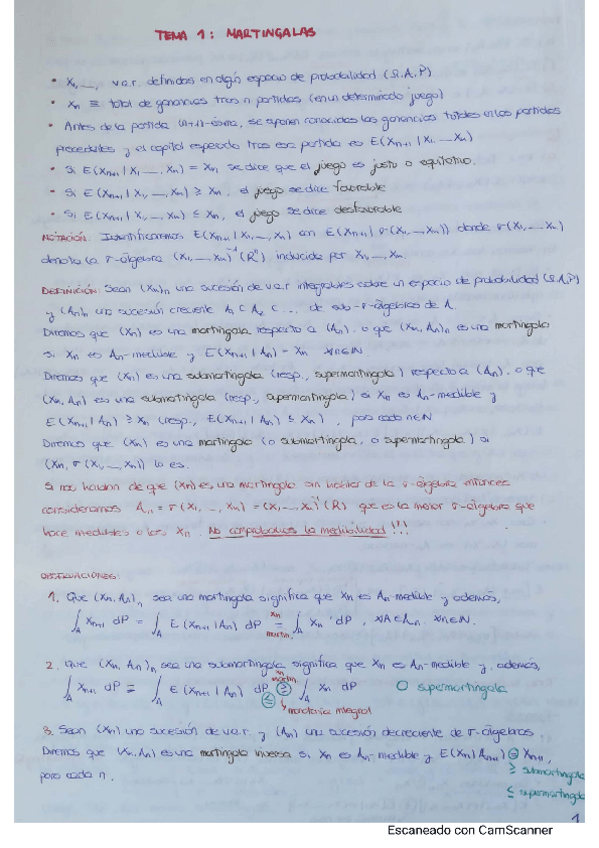 TEMA 1: MARTINGALAS
• X₁, ..., v.a.r. definidas en algún espacio de probabilidad (Ω, A, P)
• Xn ≡ total de ganancias tras n partidas (en un determinado juego)
• Antes de la partida (n+1)-ésima, se suponen conocidas las ganancias totales en las partidas
precedentes y el capital esperado tras esa partida es E(Xn+1 | X1, ... Xn)
• Si E(Xn+1 | X1, ..., Xn) = Xn se dice que el juego es justo o equitativo.
• Si E(Xn+1 | X1, ..., Xn) ≥ Xn, el juego se dice favorable
• Si E(Xn+1 | X1, ..., Xn) ≤ Xn, el juego se dice desfavorable
NOTACIÓN: Identificaremos E(Xn+1 | X1, ..., Xn) con E(Xn+1 | σ(X1, ..., Xn)) donde σ(X1, ... Xn)
denota la σ-álgebra (X1, ..., Xn)⁻¹(Rⁿ) inducida por X1, ..., Xn.
DEFINICIÓN: Sean (Xn)n una sucesión de v.a.r integrables sobre un espacio de probabilidad (Ω, A, P)
y (An)n una sucesión creciente A1 ⊂ A2 ⊂ ... de sub-σ-álgebras de A.
Diremos que (Xn) es una martingala respecto a (An), o que (Xn, An)n es una martingala
si Xn es An-medible y E(Xn+1 | An) = Xn ∀n∈N
Diremos que (Xn) es una submartingala (resp., supermartingala) respecto a (An), o que
(Xn, An) es una submartingala (resp., supermartingala) si Xn es An-medible y
E(Xn+1 | An) ≥ Xn (resp., E(Xn+1 | An) ≤ Xn), para cada n∈N
Diremos que (Xn) es una martingala (o submartingala, o supermartingala) si
(Xn, σ(X1, ..., Xn)) lo es.
Si nos hablan de que (Xn) es una martingala sin hablar de la σ-álgebra entonces
consideramos An = σ(X1, ..., Xn) = (X1, ..., Xn)⁻¹(R) que es la menor σ-álgebra que
hace medibles a los Xn. No comprobamos la medibilidad!!!
OBSERVACIONES:
1. Que (Xn, An)n sea una martingala significa que Xn es An-medible y además,
∫A Xn+1 dP = ∫A E(Xn+1 | An) dP = ∫A Xn dP, ∀A∈An ∀n∈N.
Xn martin.
2. Que (Xn, An)n sea una submartingala significa que Xn es An-medible y, además,
∫A Xn+1 dP = ∫A E(Xn+1 | An) dP ≥ ∫A Xn dP
≤ O supermartingala
monotonía integral
3. Sean (Xn) una sucesión de v.a.r. y (An) una sucesión decreciente de σ-álgebras
Diremos que (Xn, An) es una martingala inversa si Xn es An-medible y E(Xn | An+1) = Xn+1,
para cada n.
≥ submartingala
≤ supermartingala
1
Escaneado con CamScanner